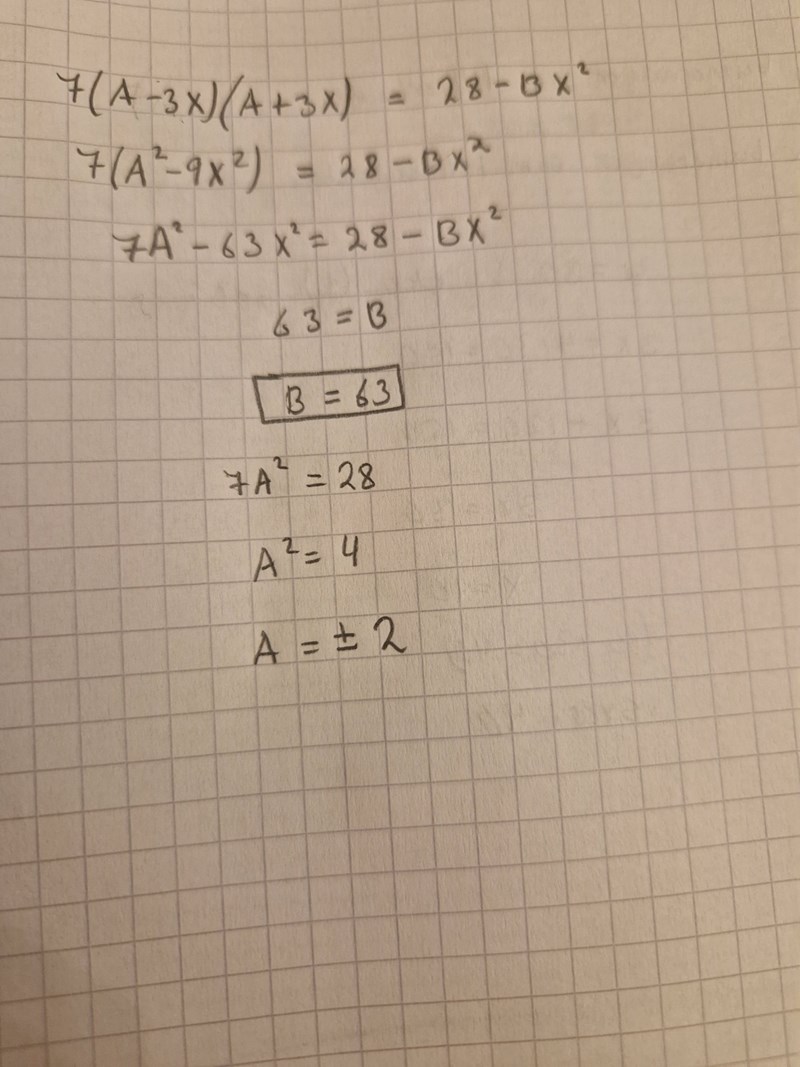 7(A-3x)(A+3x) = 28-Bx²
7(A²-9x²) = 28-Bx²
7A²-63x² = 28-Bx²
63 = B
B = 63
7A² = 28
A² = 4
A = ± 2